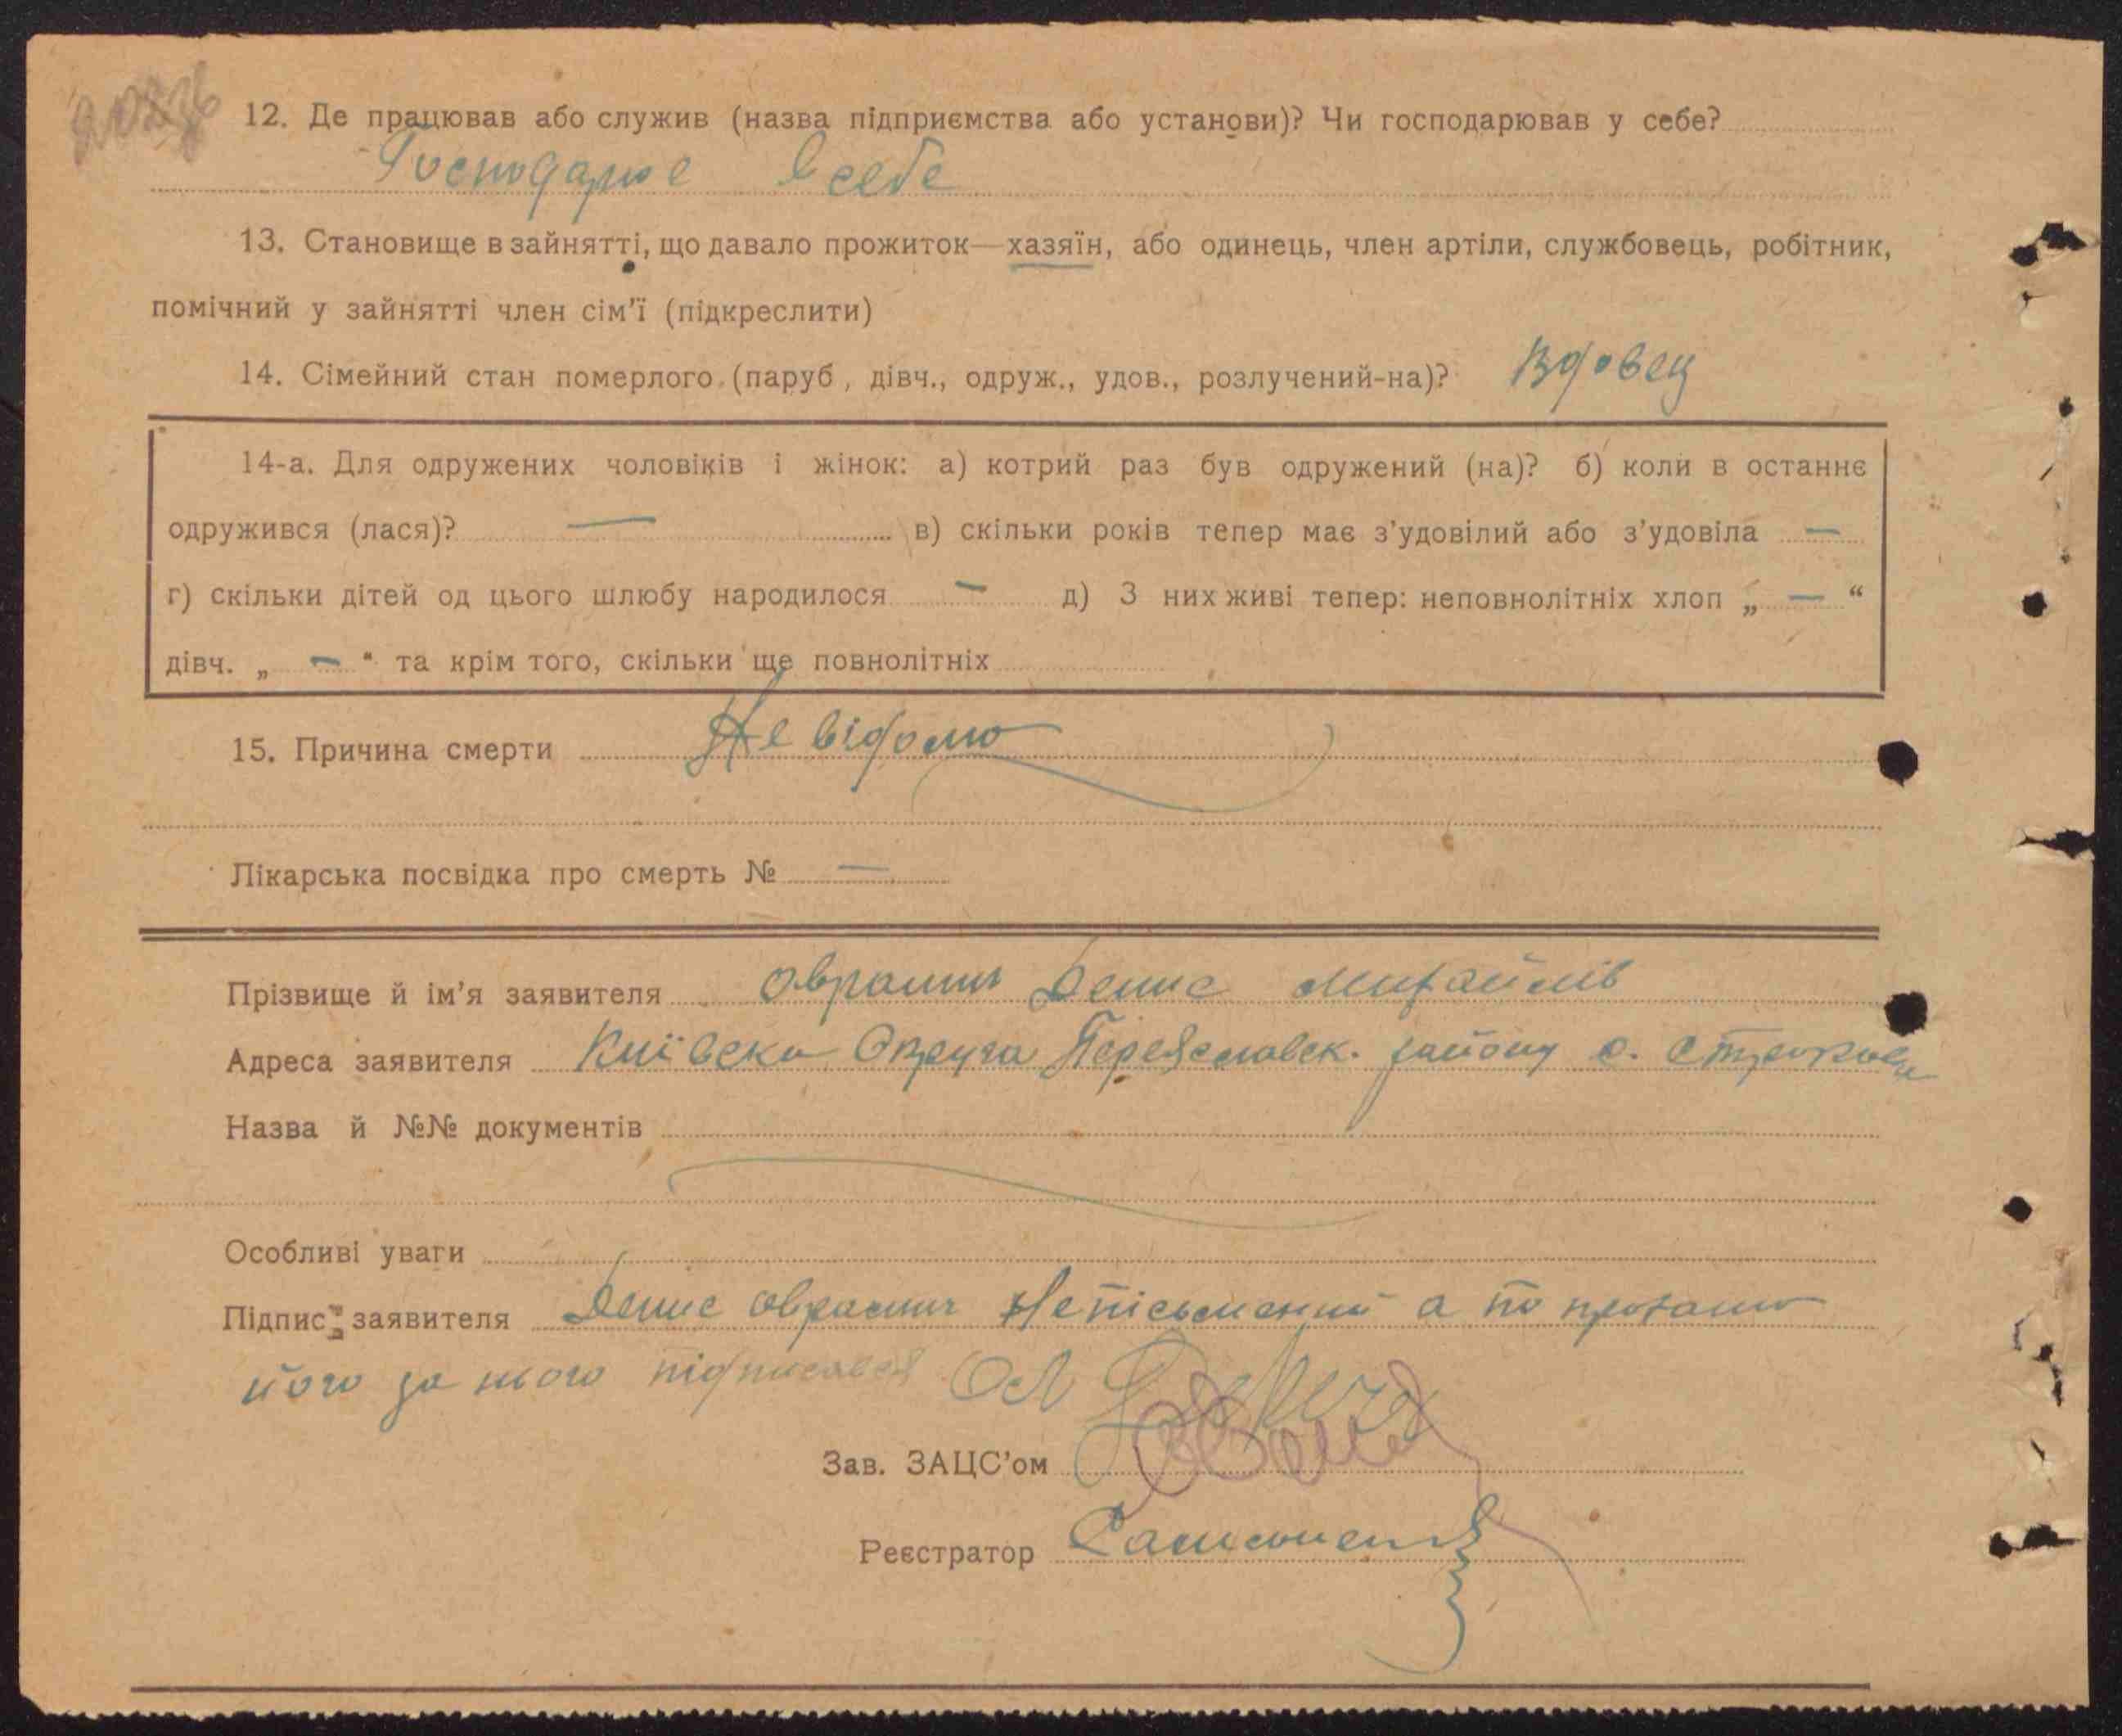 12. Де працював або служив (назва підприємства або установи)? Чи господарював у себе?
Господарює в себе
13. Становище в зайнятті, що давало прожиток—хазяїн, або одинець, член артіли, службовець, робітник,
помічний у зайнятті член сім'ї (підкреслити)
14. Сімейний стан померлого (паруб, дівч., одруж., удов., розлучений-на)? Вдовец
14-а. Для одружених чоловіків і жінок: а) котрий раз був одружений (на)? б) коли в останнє
одружився (лася)? — в) скільки років тепер має з'удовілий або з'удовіла —
г) скільки дітей од цього шлюбу народилося — д) З них живі тепер: неповнолітніх хлоп „ — “
дівч. „ — “ та крім того, скільки ще повнолітніх
15. Причина смерти Не відомо
Лікарська посвідка про смерть № —
Прізвище й ім'я заявителя Денис Михайлів
Адреса заявителя Київска Округа Переяславск. району с.
Назва й №№ документів
Особливі уваги
Підпис заявителя Денис Непісьменний а по проханю
його за нього підписався
Зав. ЗАЦС'ом
Реєстратор